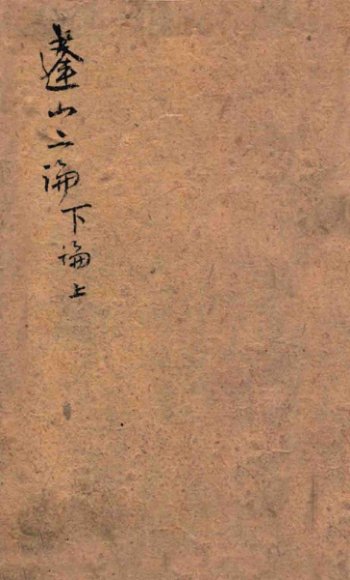 蓬山二論下論上